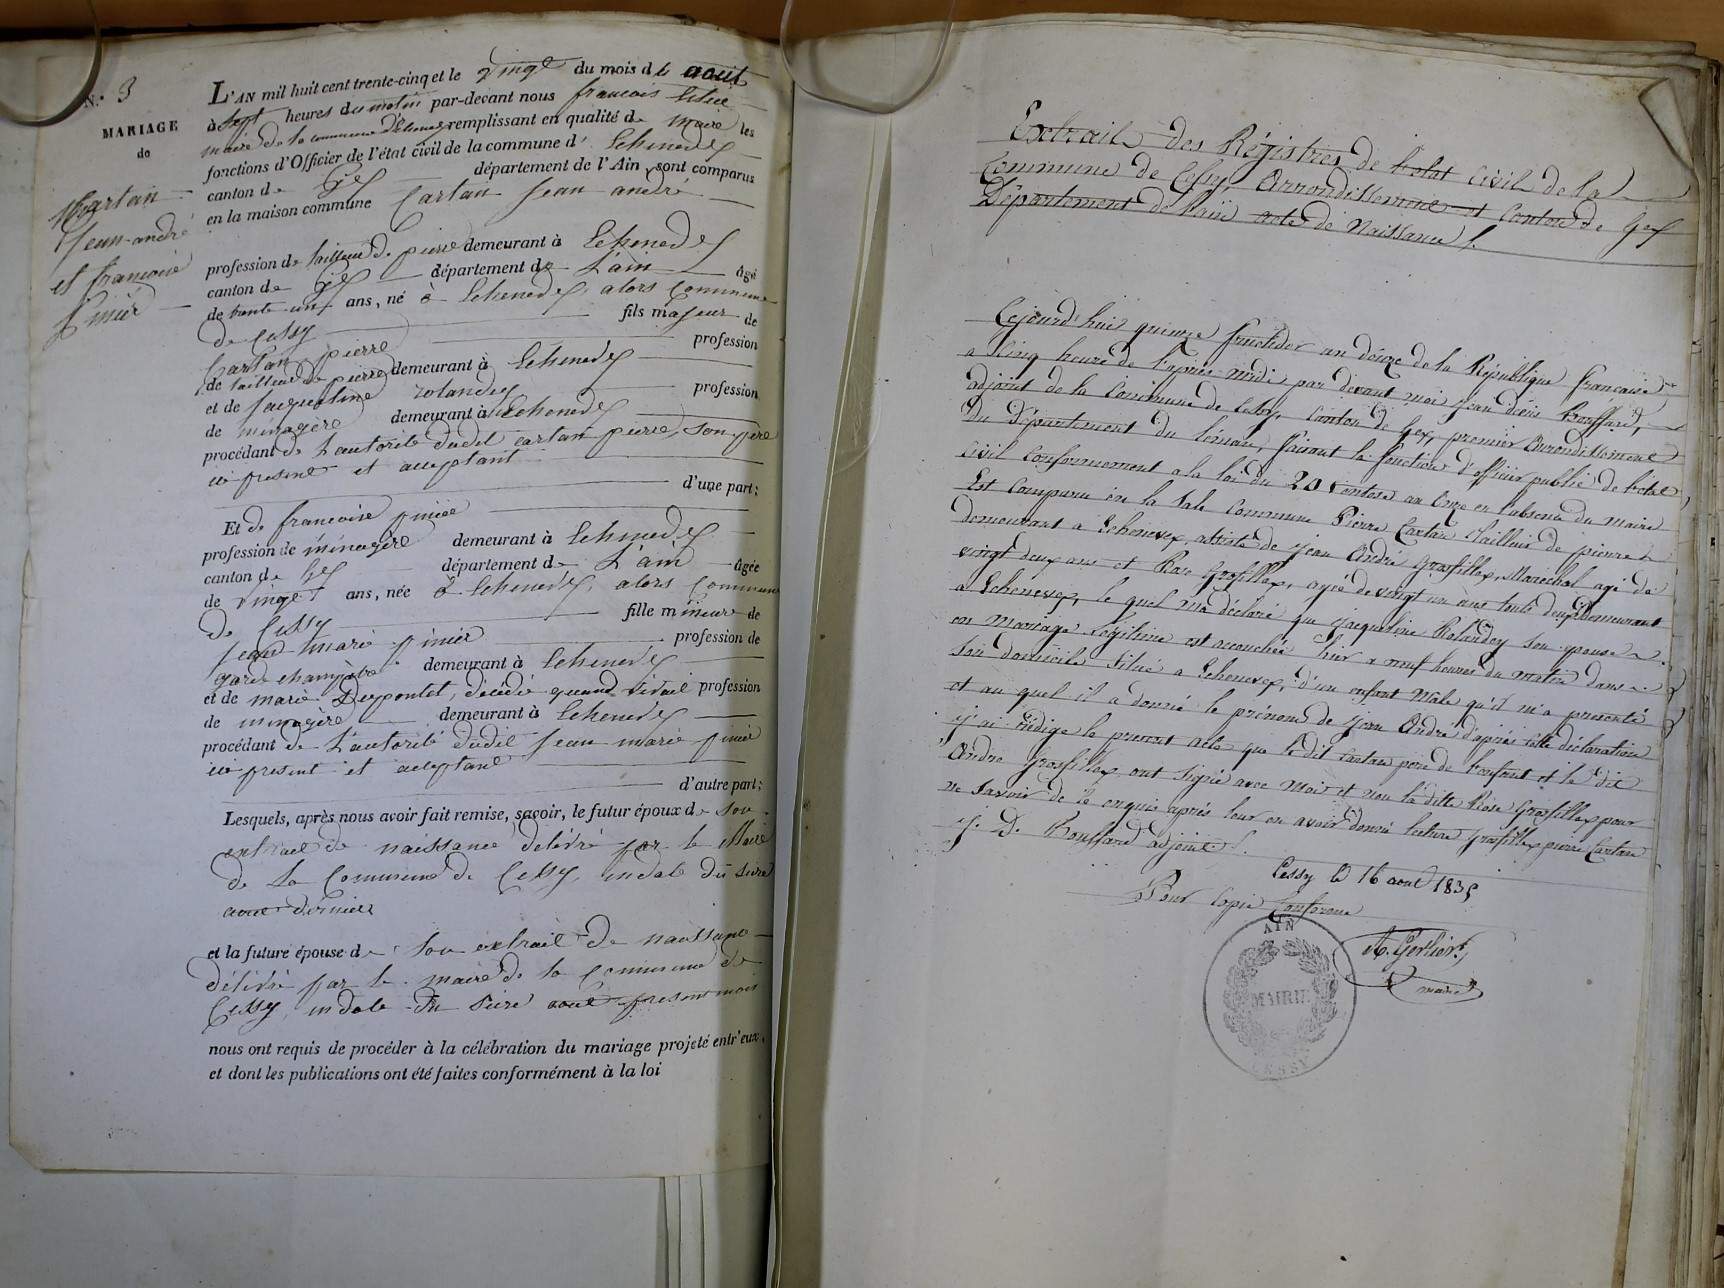 N.° 3
MARIAGE
de
Cartan
Jean-andré
et françoise
pinier
L'AN mil huit cent trente-cinq et le vingt du mois de août
à sept heures du matin par-devant nous francois
maire de la commune d'Echenevex remplissant en qualité de maire les
fonctions d'Officier de l'état civil de la commune d' Echenevex
canton de Gex département de l'Ain, sont comparus
en la maison commune Cartan Jean andré
profession de tailleur de pierre demeurant à Echenevex
canton de Gex département de L'ain âgé
de trente un ans, né à Echenevex, alors Commune
de Cessy fils majeur de
Cartan pierre profession
de tailleur de pierre demeurant à Echenevex
et de jacqueline rolandey profession
de menagère demeurant à Echenevex
procédant de L'autorité dudit cartan pierre, son père
ici present et acceptant
d'une part;
Et de françoise pinier
profession de ménagère demeurant à Echenevex
canton de Gex département de L'ain âgée
de vingt ans, née à Echenevex, alors Commune
De Cessy fille mineure de
jean marie pinier profession de
garde champêtre demeurant à Echenevex
et de marie Duponlet, décédée quand vivait profession
de ménagère demeurant à Echenevex
procédant de L'autorité dudit jean marie pinier
ici present et acceptant
d'autre part;
Lesquels, après nous avoir fait remise, savoir, le futur époux de son
extrait de naissance délivré par le Maire
de La Commune de Cessy, en date du seize
aout dernier
et la future épouse de son extrait de naissance
délivré par le maire de la commune de
Cessy, en date du seize aout present mois
nous ont requis de procéder à la célébration du mariage projeté entr'eux,
et dont les publications ont été faites conformément à la loi
Extrait des Régistres de l'etat Civil de la
Commune de Cessy, Arrondissement et Canton de Gex
Département de l'ain acte de Naissance
Cejourd'hui quinze fructidor an douze de la République francaise
a Cinq heure de l'apres midi par devant moi jean denis Bouffard,
adjoint de la Commune de Cessy, Canton de Gex, premier arrondissement
du Département du Léman, faisant la fonction d'officier public de l'etat
Civil Conformement a la loi du 20 ventose an Onze en l'absence du maire
Est Comparu en la Sale Commune Pierre Cartan tailleur de pierre
demeurant a Echenevex, assisté de jean André Grosfillex, Maréchal agé de
vingt deux ans et Rose Grosfillex, agée de vingt un ans touts deux demeurant
a Echenevex, le quel m'a déclaré que jacqueline Rolandey son epouse
en Mariage légitime est accouchée hier a neuf heures du matin dans
son domicile situé a Echenevex, d'un enfant Male qu'il m'a presenté
et au quel il a donné le prénom de jean André d'apres cette déclaration
j'ai rédigé le present acte que le dit Cartan pere de l'enfant et le dit
André Grosfillex, ont signé avec moi et non la ditte Rose Grosfillex pour
ne savoir de ce enquis après leur en avoir donné lecture Grosfillex pierre Cartan
J. D. Bouffard adjoint
Cessy le 16 aout 1835
Pour Copie Conforme
maire
AIN
MAIRIE
CESSY